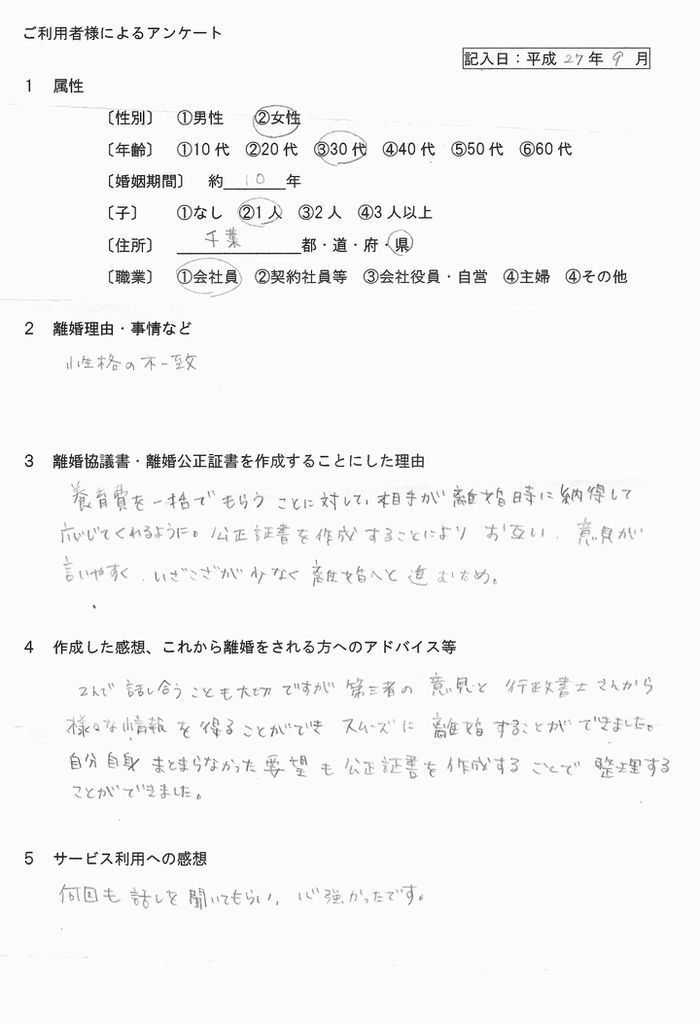 ご利用者様によるアンケート
記入日：平成 27 年 9 月
1 属性
〔性別〕 ①男性 ②女性
〔年齢〕 ①10代 ②20代 ③30代 ④40代 ⑤50代 ⑥60代
〔婚姻期間〕 約 10 年
〔子〕 ①なし ②1人 ③2人 ④3人以上
〔住所〕 千葉 都・道・府・県
〔職業〕 ①会社員 ②契約社員等 ③会社役員・自営 ④主婦 ④その他
2 離婚理由・事情など
性格の不一致
3 離婚協議書・離婚公正証書を作成することにした理由
養育費を一括でもらうことに対して、相手が離婚時に納得して
応じてくれるように。公正証書を作成することにより お互い、意見が
言いやすく、いざこざが少なく離婚へと進むため。
4 作成した感想、これから離婚をされる方へのアドバイス等
2人で話し合うことも大切ですが第三者の意見と行政書士さんから
様々な情報を得ることができ スムーズに離婚することができました。
自分自身まとまらなかった要望も公正証書を作成することで整理する
ことができました。
5 サービス利用への感想
何回も話しを聞いてもらい、心強かったです。